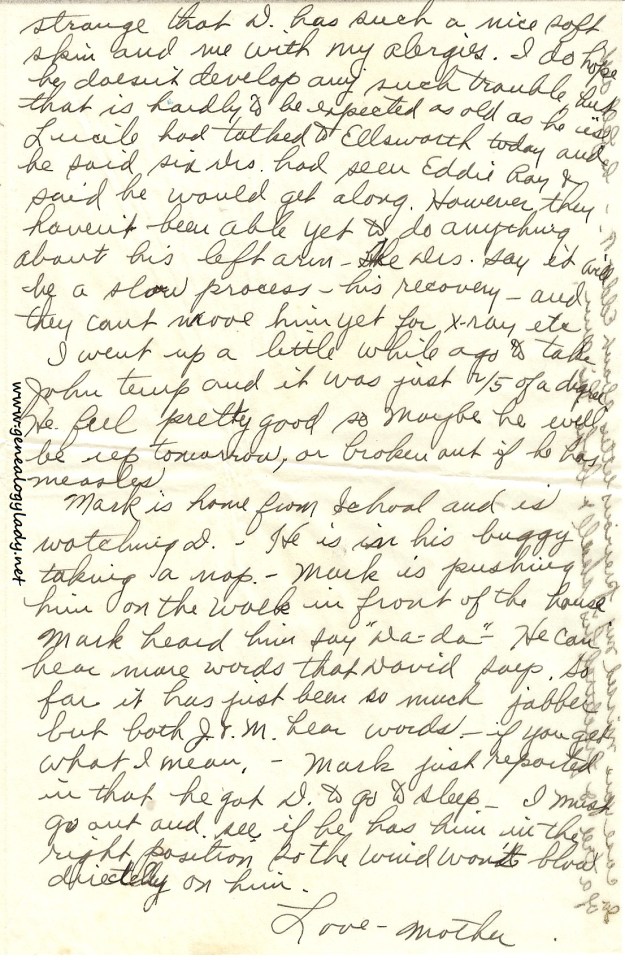 strange that D. has such a nice soft
skin and me with my alergies. I do hope
he doesn't develop any such trouble, but
that is hardly to be expected as old as he is.
Lucile had talked to Ellsworth today and
he said six Drs. had seen Eddie Ray &
said he would get along. However, they
haven't been able yet to do anything
about his left arm - The Drs. say it will
be a slow process - his recovery - and
they cant move him yet for X-ray etc
I went up a little while ago to take
John temp and it was just 2/5 of a degree
He feel pretty good so maybe he will
be up tomorrow, or broken out if he has
measles
Mark is home from School and is
watching D. - He is in his buggy
taking a nap. - Mark is pushing
him on the walk in front of the house
Mark heard him say "Da-da" - He can
hear more words that David says. So
far it has just been so much jabber
but both J. & M. hear words - if you get
what I mean. - Mark just reported
in that he got D. to go to sleep - I must
go out and see if he has him in the
right position so the wind won't blow
directly on him.
Love - Mother
www.genealogylady.net